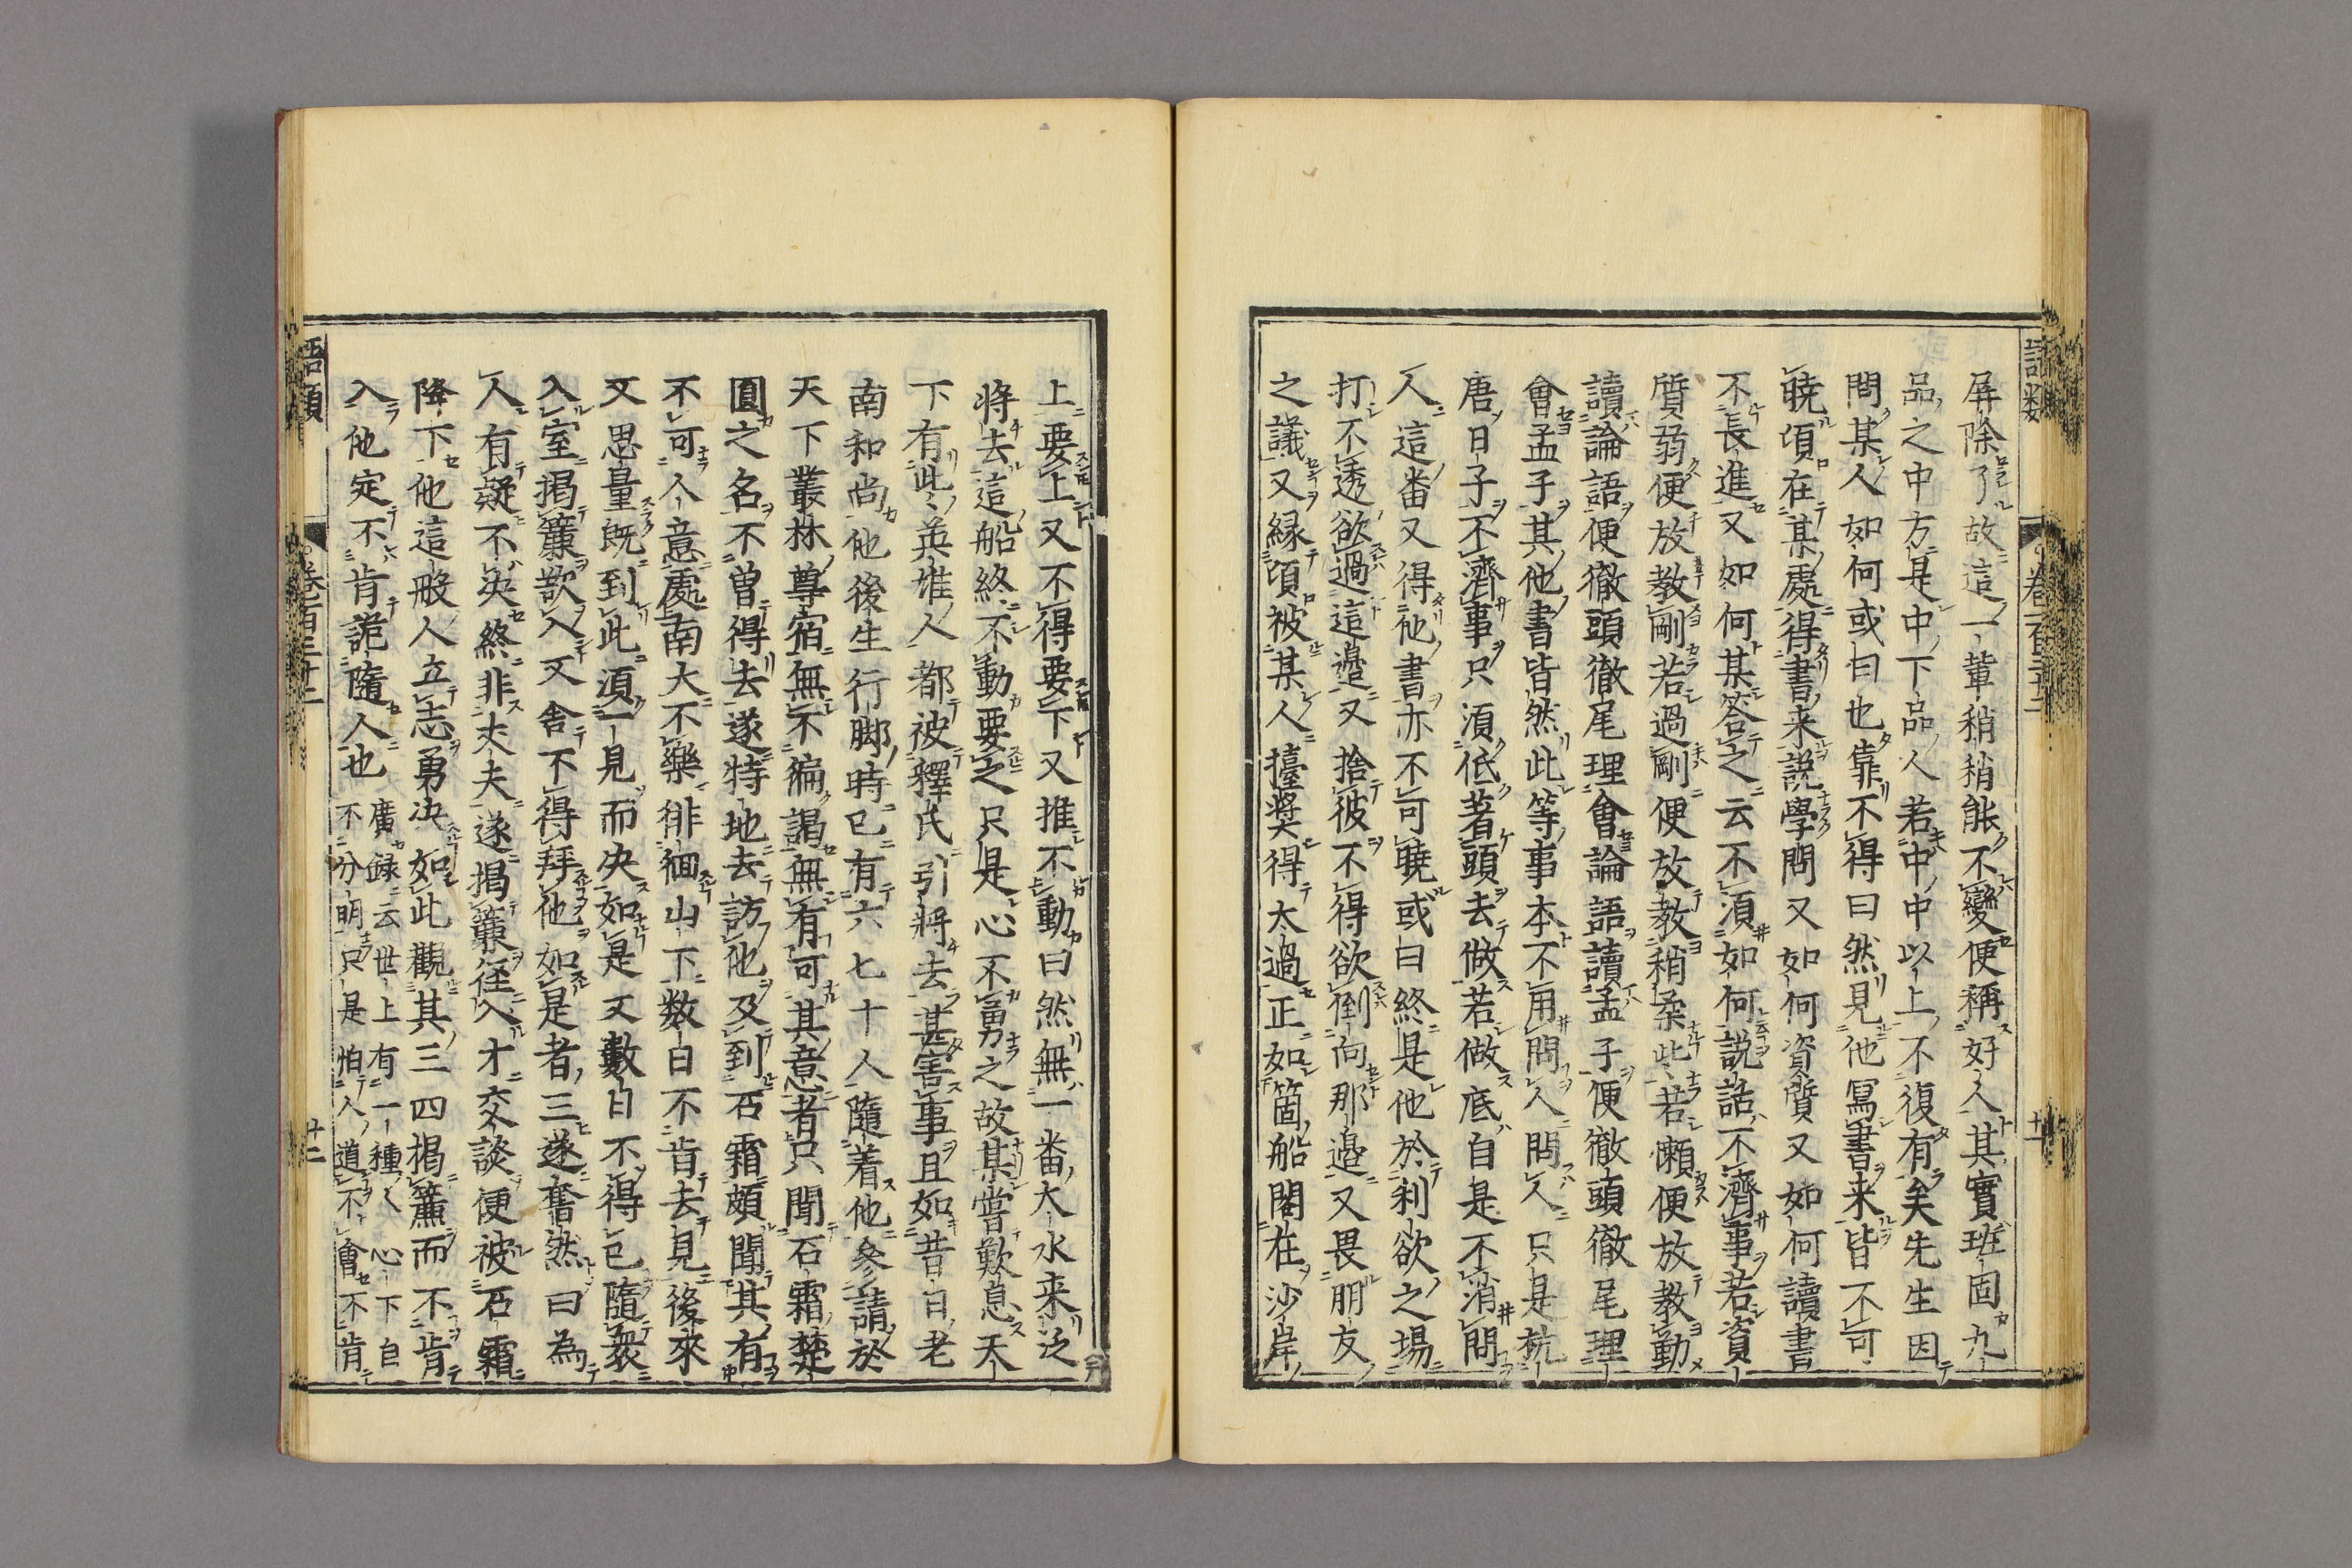 屏除了故這一輩稍稍能不變便稱好人其實班固九
品之中方是中下品人若中中以上不復有矣先生因
問某人如何或曰也靠不得曰然見他寫書来皆不可
曉頃在某處得書来説學問又如何資質又如何讀書
不長進又如何某答之云不湏如何説話不濟事若資
質弱便放教剛若過剛便放教稍柔些若懶便放教勤
讀論語便徹頭徹尾理會論語讀孟子便徹頭徹尾理
會孟子其他書皆然此等事本不用問人問人只是杭
唐日子不濟事只湏低著頭去做若做底自是不消問
人這番又得他書亦不可曉或曰終是他於利欲之場
打不透欲過這邉又捨彼不得欲倒向那邉又畏朋友
之議又縁頃被某人擡奬得太過正如箇船閣在沙岸
語類
卷百三十二
十二
上要上又不得要下又推不動曰然無一番大水来泛
將去這船終不動要之只是心不勇之故某嘗歎息天
下有此英雄人都被釋氏引將去甚害事且如昔日老
南和尚他後生行脚時已有六七十人隨着他參請於
天下叢林尊宿無不徧謁無有可其意者只聞石霜楚
圓之名不曽得去遂特地去訪他及到石霜頗聞其有
不可人意處南大不樂徘徊山下数日不肯去見後來
又思量既到此湏一見而決如是又數日不得已隨衆
入室揭簾欲入又舍不得拜他如是者三遂奮然曰為
人有疑不決終非丈夫遂揭簾徑入才交談便被石霜
降下他這般人立志勇决如此觀其三四揭簾而不肯
入他定不肯詭隨人也
廣録云世上有一種人心下自
不分明只是怕人道不會不肯
語類
卷百三十二
廿二